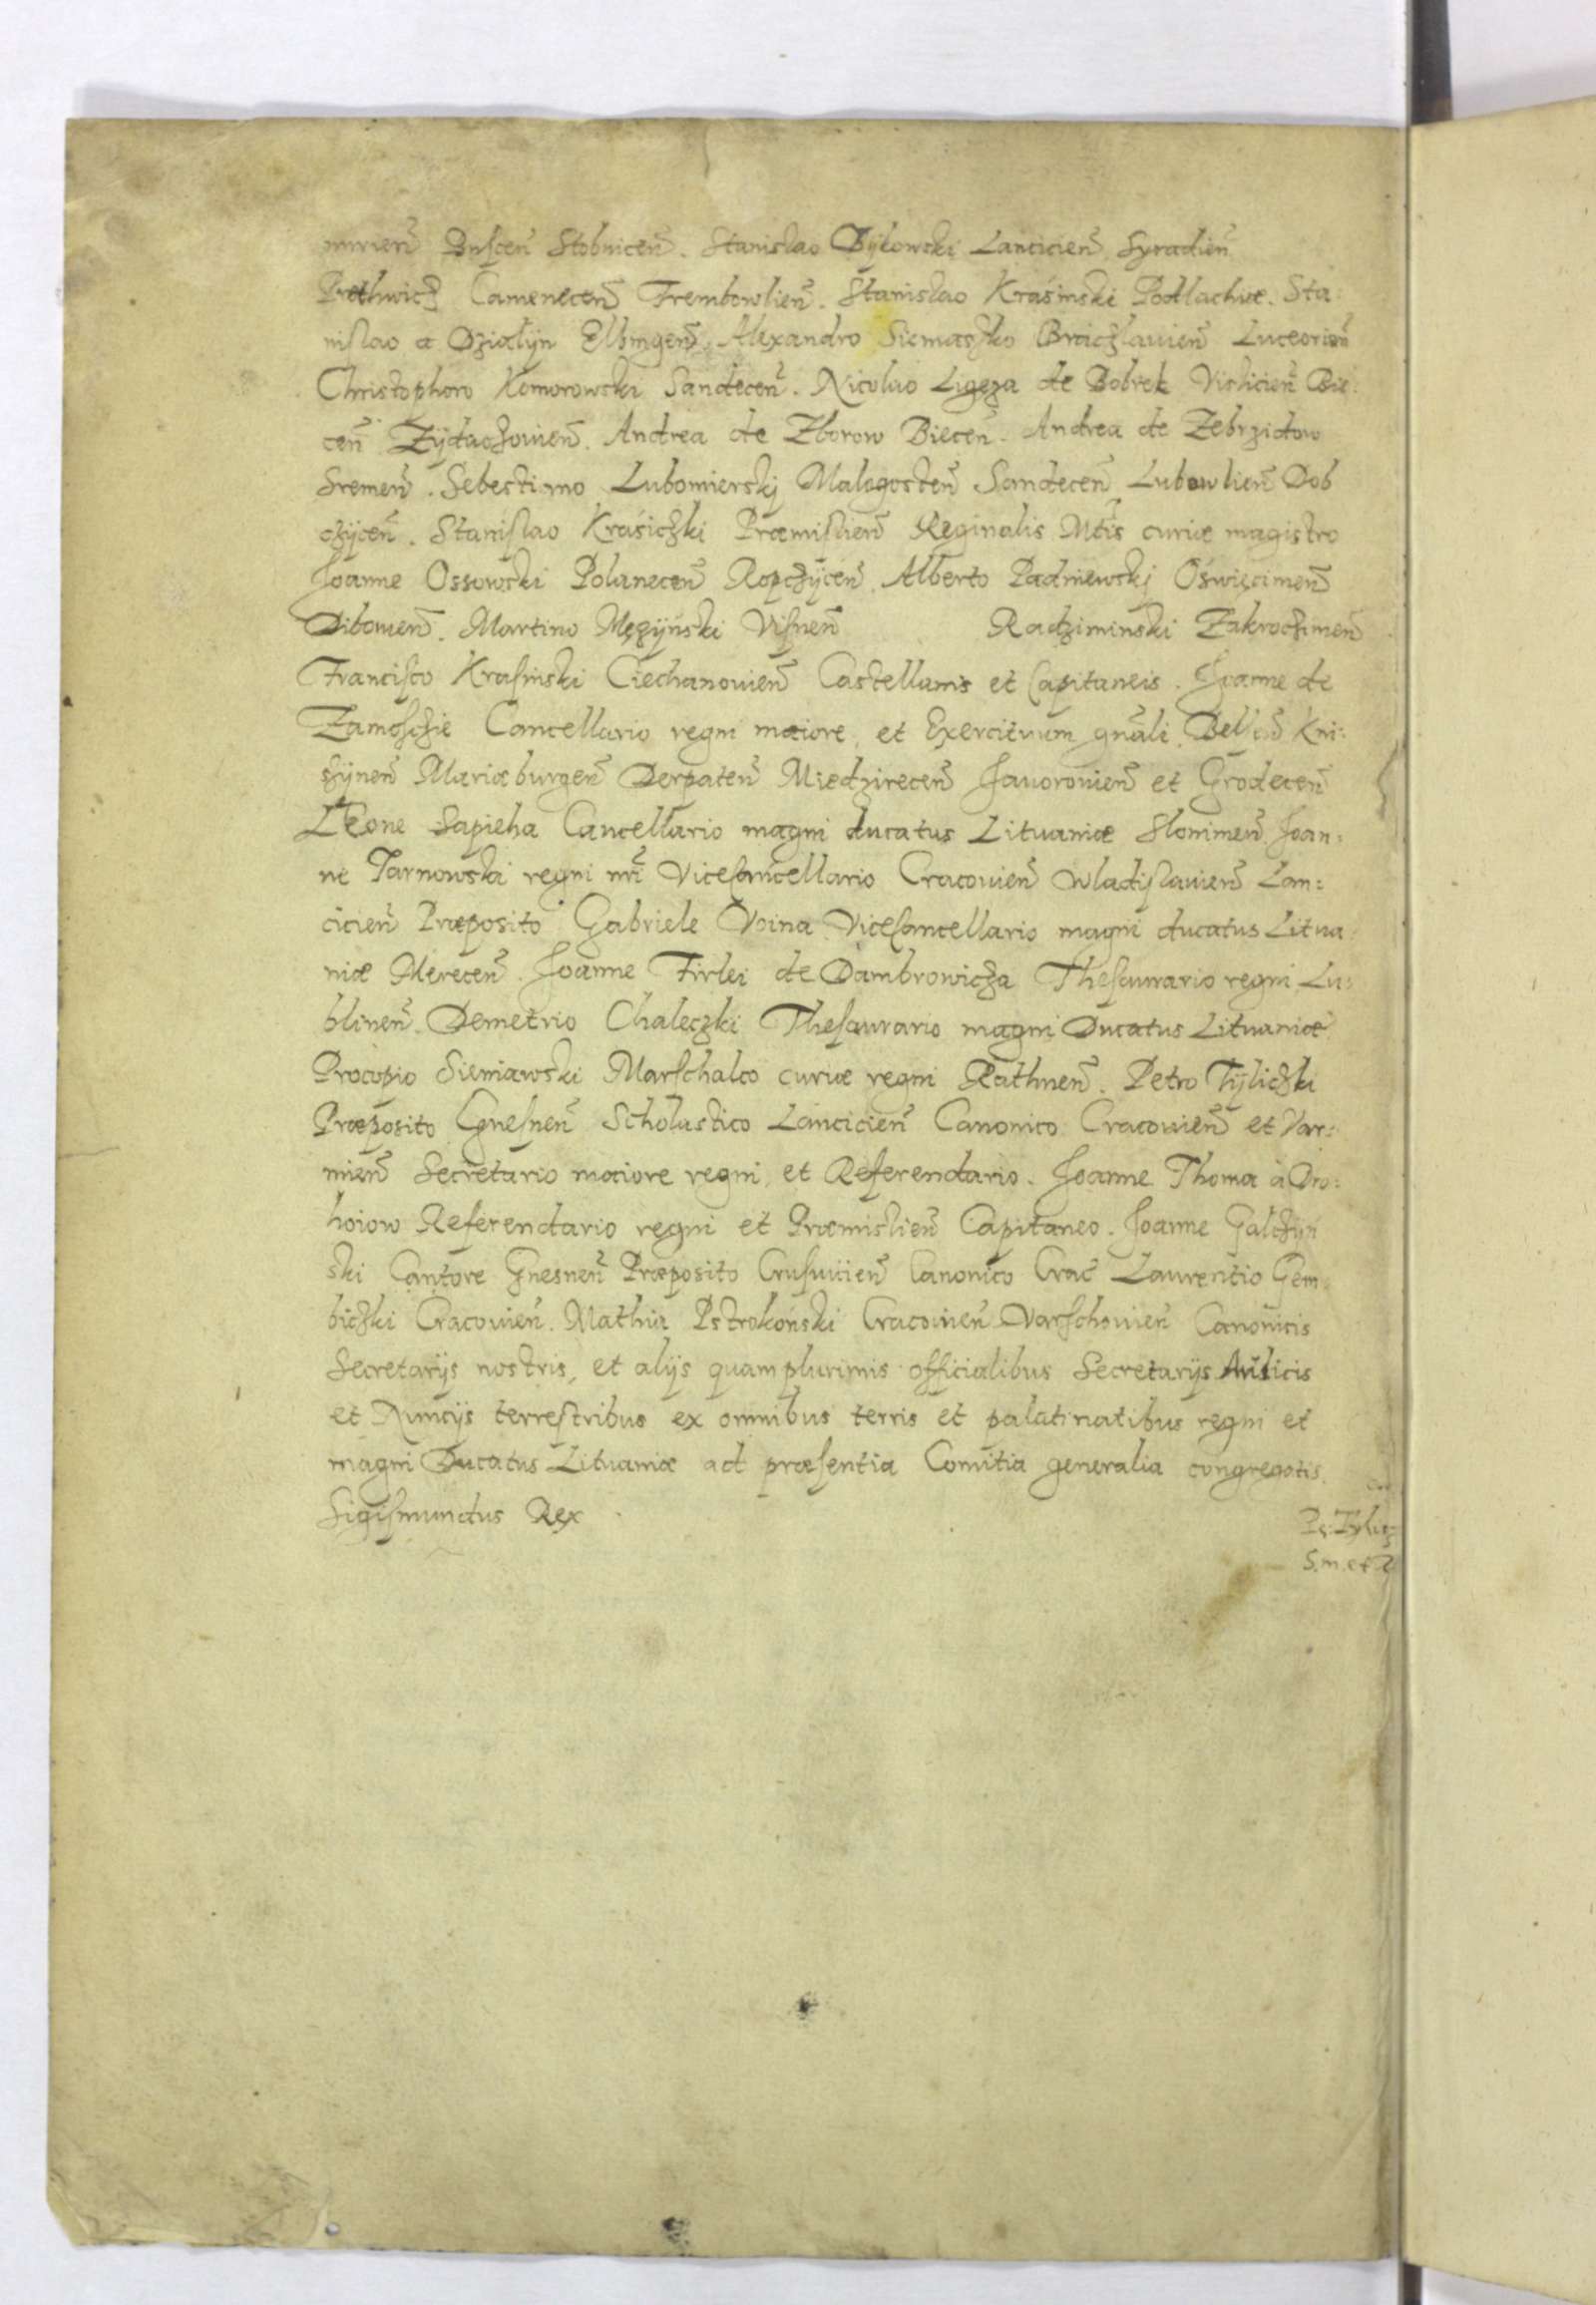 mirien̄ Buscen̄ Stobnicen̄. Stanislao Bÿkowski Lancicien̄ Syradien̄
Prethwicz Camenecen̄ Trembowlien̄. Stanislao Kraśinski Podlachiæ. Sta:
nislao a Dzialÿn Elbingen̄. Alexandro Siemaszko Braczlauien̄ Luceorien̄
Christophoro Komorowski Sandecen̄. Nicolao Ligęza de Bobrek Vislicien̄ Bie:
cen̄ Zÿdaczowien̄. Andrea de Zborow Biecen̄. Andrea de Zebrzidow
Sremen̄. Sebestiano Lubomierskj Malogosten̄ Sandecen̄ Lubowlien̄ Dob
czÿcen̄. Stanislao Kraśiczki Præmislien̄ Reginalis Mtis curiæ magistro
Joanne Ossowski Polanecen̄ Ropczÿcen̄. Alberto Padniewskj Oświęcimen̄
Dibowen̄. Martino Męzÿński Visnen̄ Radziminski Zakroczimen̄
Francisco Krasinski Ciechanouien̄ Castellanis et Capitaneis. Joanne de
Zamosczie Cancellario regni maiore, et Exercituum gn̄ali Belsen̄ Kni:
szÿnen̄ Mariæburgen̄ Derpaten̄ Miedzirecen̄ Jauorouien̄ et Grodecen̄
Leone Sapieha Cancellario magni ducatus Lituaniæ Slonimen̄ Joan:
ne Tarnowski regni nr̄i Vicecancellario Cracouien̄ Wladislauien̄ Lan:
cicien̄ Præposito Gabriele Voina Vicecancellario magni ducatus Litua:
niæ Merecen̄. Joanne Firlei de Dambrowicza Thesaurario regni Lu:
blinen̄. Demetrio Chaleczki Thesaurario magni Ducatus Lituaniæ
Procopio Sieniawski Marschalco curiæ regni Rathnen̄. Petro Tÿliczki
Præposito Gnesnen̄ Scholastico Lancicien̄ Canonico Cracouien̄ et Var:
mien̄ Secretario maiore regni, et Referendario. Joanne Thoma à Dro:
hoiow Referendario regni et Præmislien̄ Capitaneo. Joanne Galczÿn
ski Cantore Gnesnen̄ Præposito Crusuicien̄ Canonico Crac̄ Laurentio Gem:
biczki Cracouien̄. Mathia Pstrokoński Cracouien̄ Varschouien̄ Canonicis
Secretarÿs nostris, et alÿs quamplurimis officialibus Secretarÿs Aulicis
et Nuncÿs terrestribus ex omnibus terris et palatinatibus regni et
magni Ducatus Lituaniæ ad præsentia Comitia generalia congregatis.
Sigismundus Rex
S.m. et